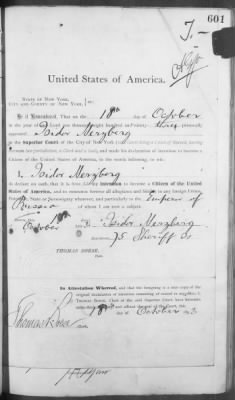 601
United States of America.
STATE OF NEW YORK,
CITY AND COUNTY OF NEW YORK, } ss.:
Be it Remembered, That on the 18th day of October
in the year of our Lord one thousand eight hundred and ninety- personally
appeared Isidor Merzberg
in the Superior Court of the City of New York
and made his declaration of intention to become a
Citizen of the United States of America, in the words following, to wit:
I, Isidor Merzberg
do declare on oath, that it is bona fide my intention to become a Citizen of the United
States of America, and to renounce forever all allegiance and fidelity to any foreign Prince,
Potentate, State or Sovereignty whatever, and particularly to the Emperor of
Russia of whom I am now a subject.
October 18th Isidor Merzberg
75 Sheriff St
THOMAS BOESE,
Clerk.
In Attestation Whereof, and that the foregoing is a true copy of the
original declaration of intention remaining of record in my office, I,
Thomas Boese, Clerk of the said Superior Court have hereunto
Thomas Boese
18th day of October